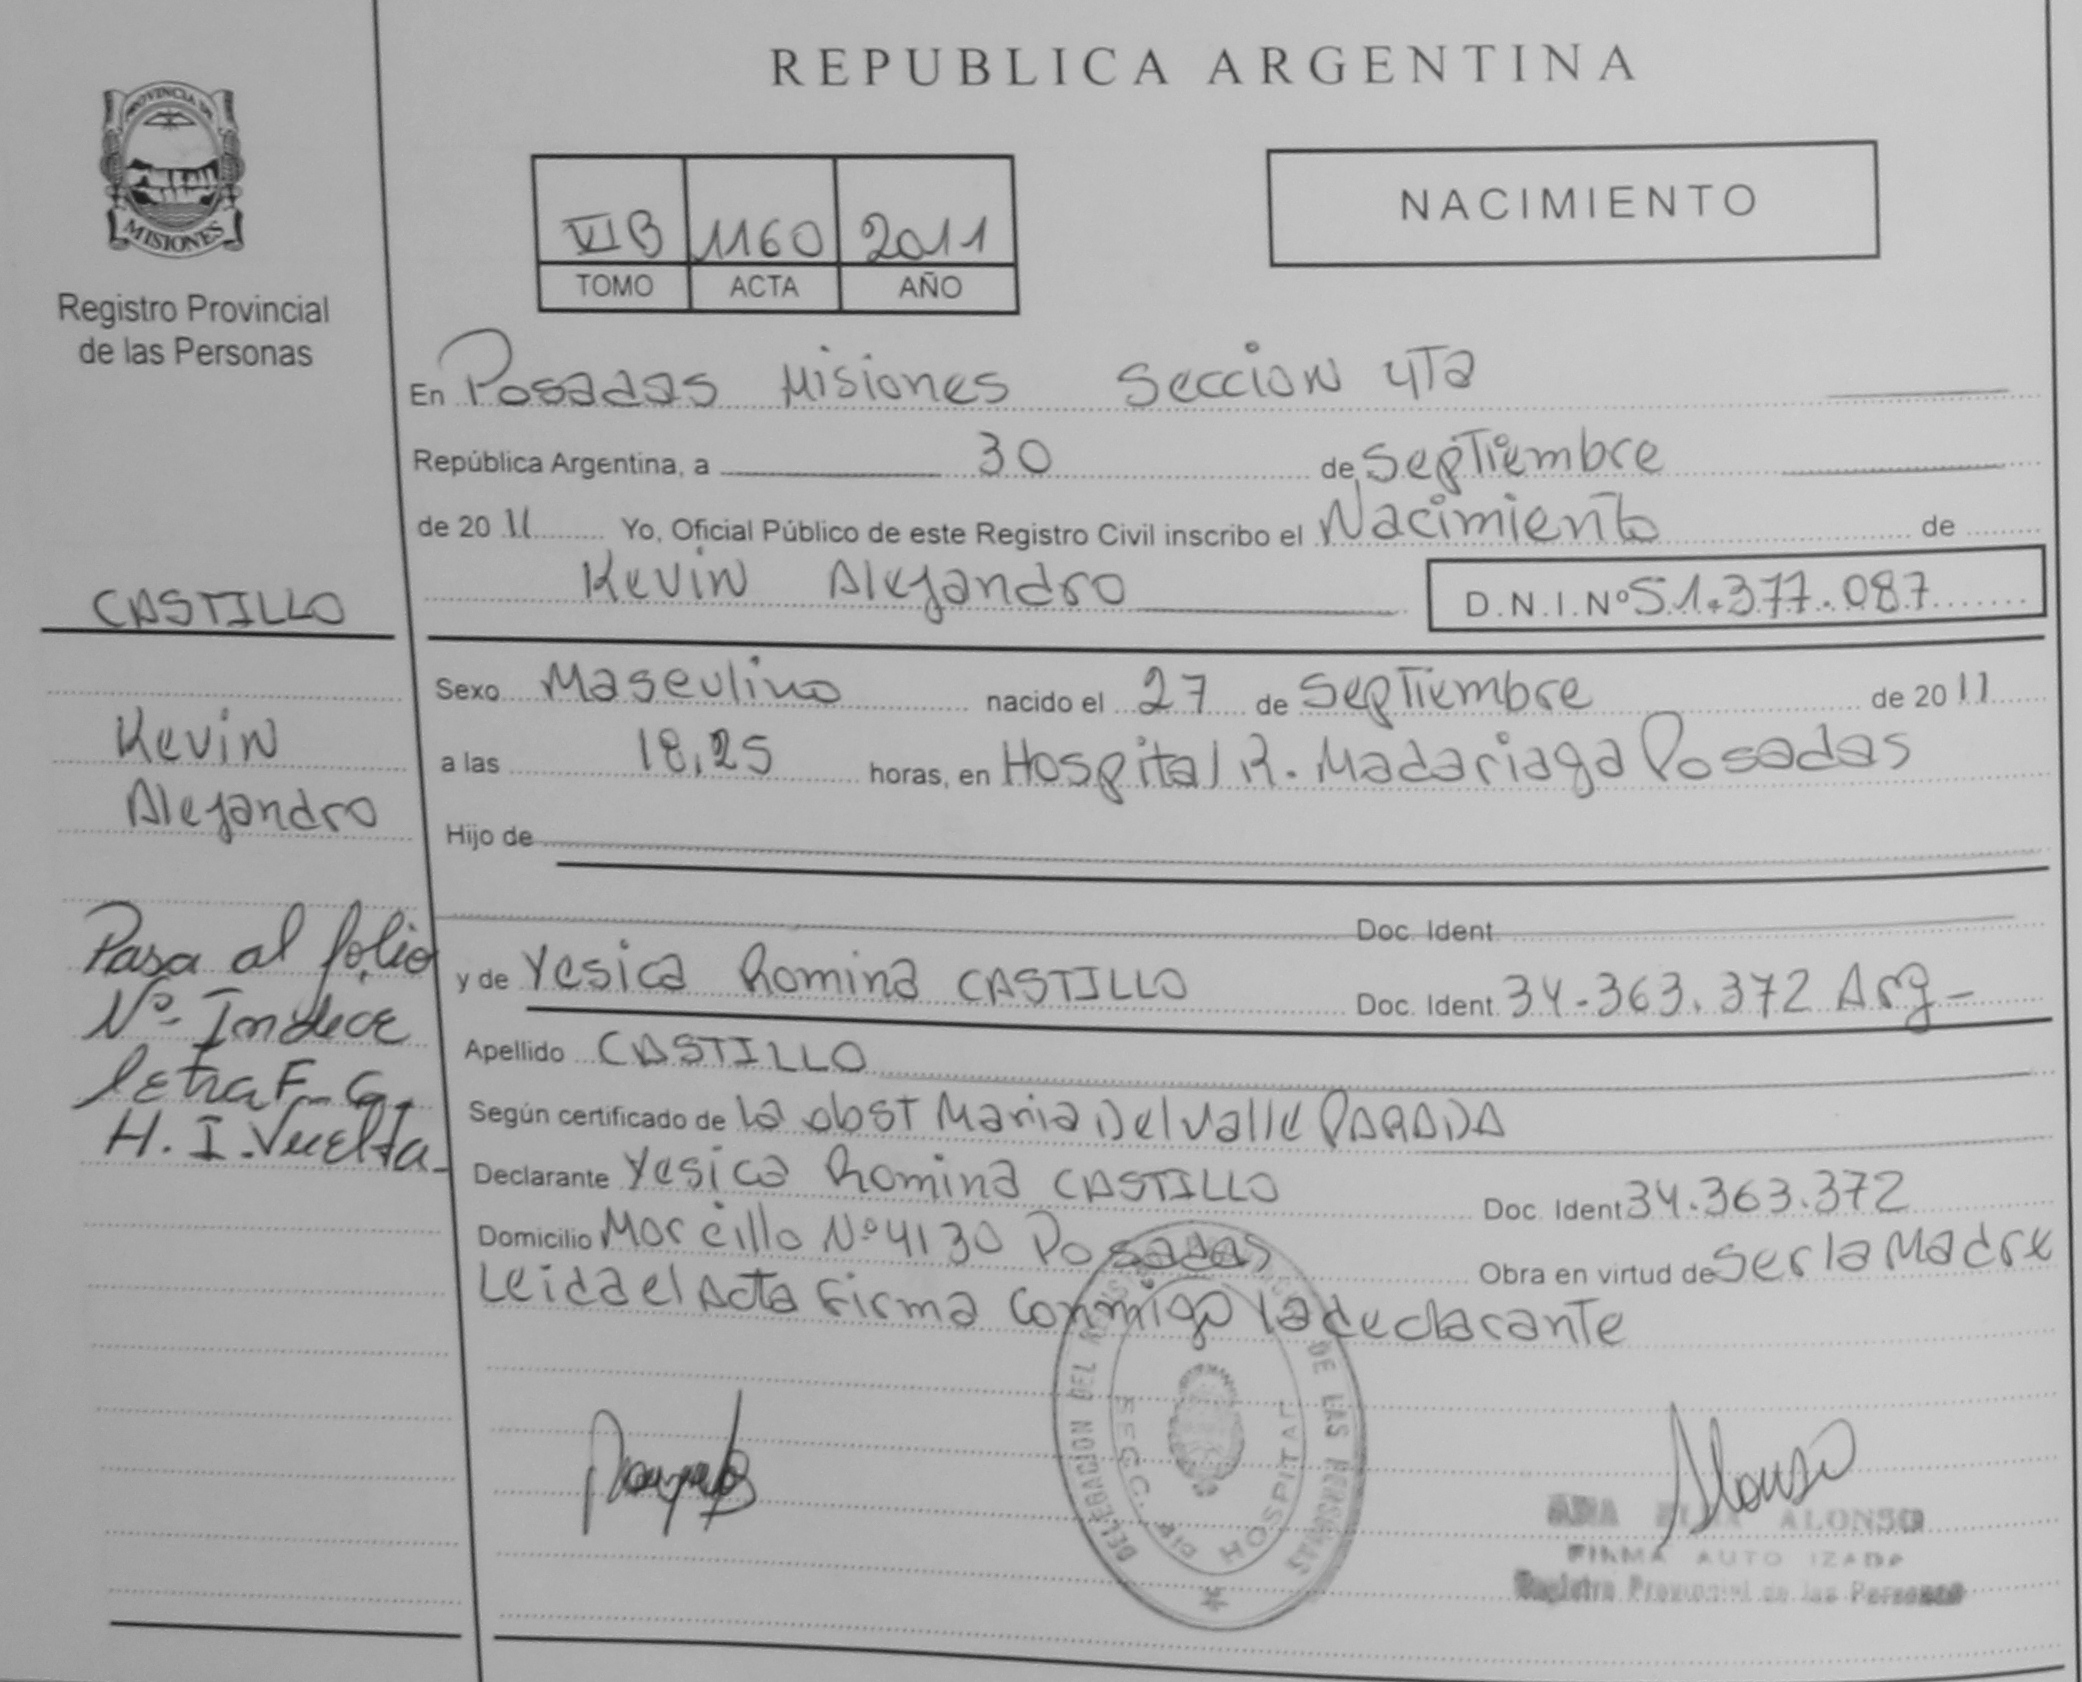 REPUBLICA ARGENTINA
PROVINCIA DE
MISIONES
Registro Provincial
de las Personas
VI B 1160 2011
TOMO ACTA AÑO
NACIMIENTO
En Posadas Misiones Seccion 4Ta
República Argentina, a 30 de Septiembre
de 2011 Yo, Oficial Público de este Registro Civil inscribo el Nacimiento de
Kevin Alejandro D.N.I.Nº 51.377.087
CASTILLO
Kevin
Alejandro
Pasa al folio
Nº Indece
letra F-G.
H. I. Vuelta
Sexo Masculino nacido el 27 de Septiembre de 2011
a las 18,25 horas, en Hospital R. Madariaga Posadas
Hijo de
Doc. Ident.
y de Yesica Romina CASTILLO Doc. Ident. 34.363.372 Arg
Apellido CASTILLO
Según certificado de la obst Maria Del Valle PARADA
Declarante Yesica Romina CASTILLO Doc. Ident 34.363.372
Domicilio Morcillo Nº 4130 Posadas Obra en virtud de ser la Madre
Leida el Acta Firma Conmigo la declarante
DELEGACION DEL REGISTRO PROVINCIAL DE LAS PERSONAS
SECC. 4ta HOSPITAL
Alonso
ALONSO
FIRMA AUTORIZADA
Registro Provincial de las Personas